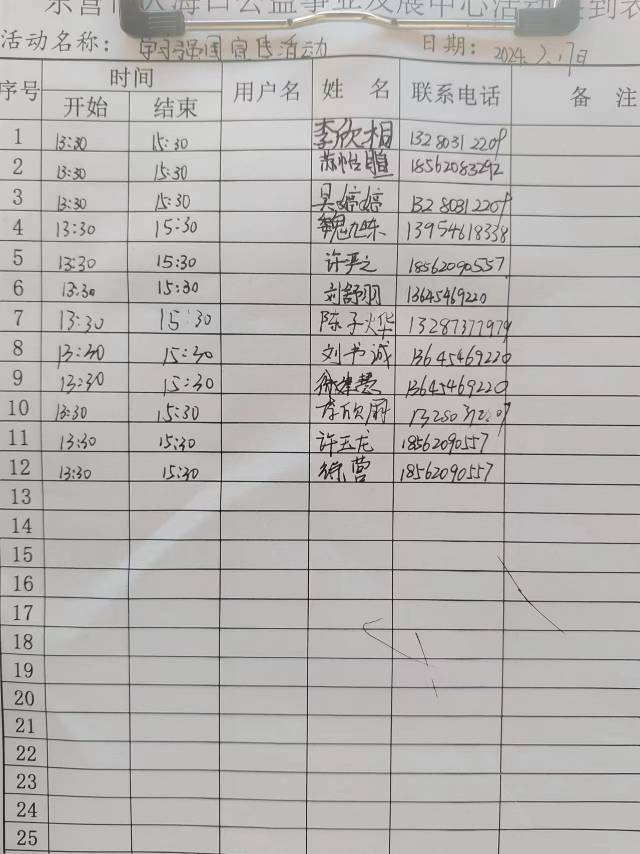 东营市 海口公益事业发展中心活动签到表
活动名称： 学习强国宣传活动 日期： 2024.2.17日
序号 时间 用户名 姓 名 联系电话 备 注
开始 结束
1 13:30 15:30 李欣桐 13280312209
2 13:30 15:30 苏怡瞳 18562083292
3 13:30 15:30 吴婷婷 13280312209
4 13:30 15:30 魏旭东 13954618338
5 13:30 15:30 许严之 18562090557
6 13:30 15:30 刘舒羽 13645469220
7 13:30 15:30 陈子烨 13287377979
8 13:30 15:30 刘书诚 13645469220
9 13:30 15:30 13645469220
10 13:30 15:30 李欣蔚
11 13:30 15:30 许玉龙 18562090557
12 13:30 15:30 徐营 18562090557
13
14
15
16
17
18
19
20
21
22
23
24
25